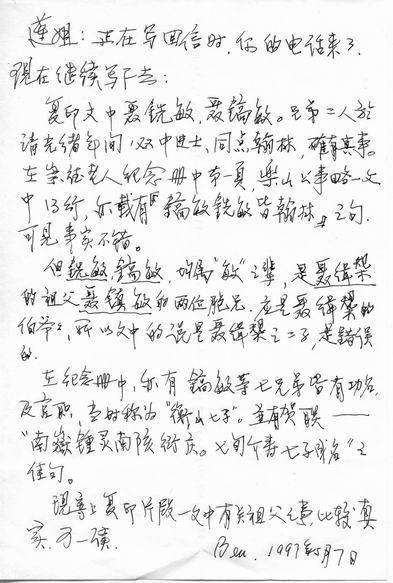 莲姐：正在写回信时，你的电话来了，
现在继续写下去：
复印文中聂銑敏，聂鎬敏。兄弟二人於
清光绪部间，双中进士、同点翰林，確有其事。
在崇征老人纪念册中第一頁，樂山公事略一文
中13行，亦載有『鎬敏銑敏皆翰林』之句，
可見事实不错。
但銑敏，鎬敏，均属“敏”之輩，是聂緝椝
的祖父聂鎮敏的两位胞兄，应是聂緝椝的
伯爷，所以文中的混是聂緝椝之二子，是錯误
的。
在纪念册中，亦有鎬敏等七兄弟皆有功名
及官职，当时称为“衡山七子”。並有贺联——
“南嶽鍾灵南陔衍庆。七旬介寿七子成名”之
佳句。
現寄上复印片段一文中有关祖父之事，比较真
实
Ben. 1997年5月7日